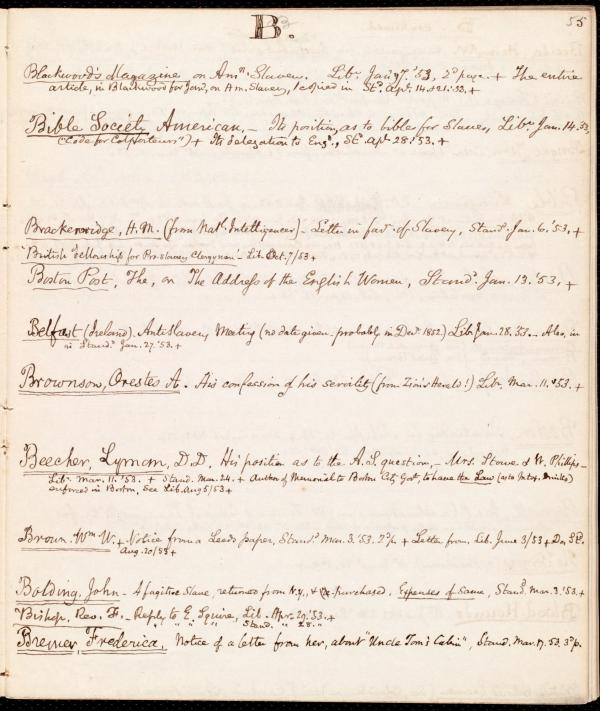 B.
55
Blackwood's Magazine, on Amn. Slavery. Libr. Jany 7. '53, 2d page. + The entire
article, in Blackwood for Jany, on Am. Slavery, copied in Sd. Apr. 14 & 21. '53. +
Bible Society, American, – Its position as to bibles for Slaves, Libr. Jan. 14. 53,
("Code for Colporteurs") + Its delegation to Engd., Sd. Apl. 28. '53. +
Brackenridge, H. M. (from Natl. Intelligencer) – Letter in favr. of Slavery, Stand. Jan. 6. '53. +
British fellowship for Pro-slavery Clergymen – Lib. Oct. 7/53 +
Boston Post, The, on The Address of the English Women, Stand. Jan. 13. '53. +
Belfast (Ireland). Anti Slavery Meeting (no date given – probably in Decr. 1852) Libr Jan. 28. '53. – Also, in
in Stand. Jan. 27. '53. +
Brownson, Orestes A. His confession of his servility (from Zion's Herald!) Libr. Mar. 11. '53. +
Beecher, Lyman, D.D. His position as to the A.S. question, – Mrs. Stowe & W. Phillips –
Libr. Mar. 11. '53. + Stand. Mar. 24. + Author of Memorial to Boston City Govt, to have the Law (as to Intox. Drinks)
enforced in Boston, See Lib. Aug 5/53 +
Brown, Wm W. + Notice from a Leeds paper, Stand. Mar. 3. '53. 2d p. + Letter from, Lib. June 3/53 + Do, Sd.
Aug. 20/53 +
Bolding, John – A fugitive Slave, returned from N.Y., & re-purchased. Expenses of Same, Stand. Mar. 3. '53. +
Bishop, Rev. F. – Reply to E. Squire, Lib. Apr. 29. '53. +
" " " " " Stand. " 28. "
Bremer, Frederica, Notice of a letter from her, about "Uncle Tom's Cabin", Stand. Mar. 17. 53. 3d p.